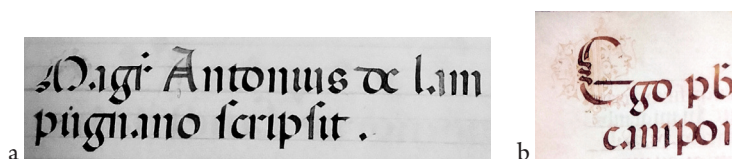 Magr Antonius de lam
pugnano scripsit .
a
Ego pb
campor
b